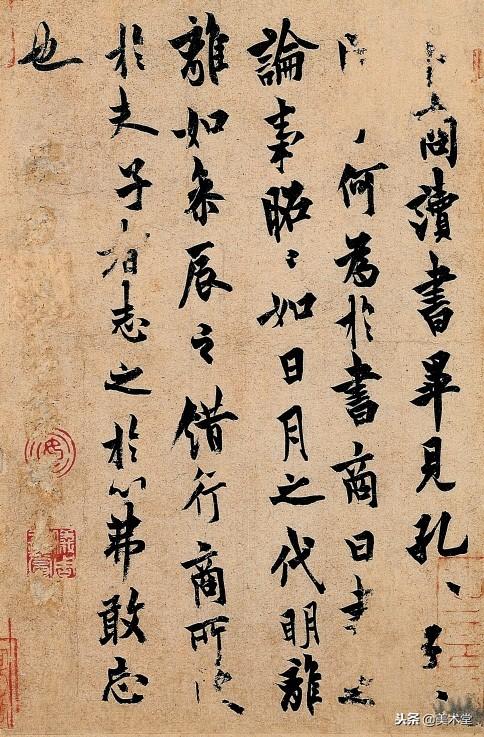 卜商讀書畢見孔〻子〻
何為於書商曰書之
論事昭〻如日月之代明離
離如參辰之錯行商所
於夫子者志之於心弗敢忘
也
头条 @美术堂